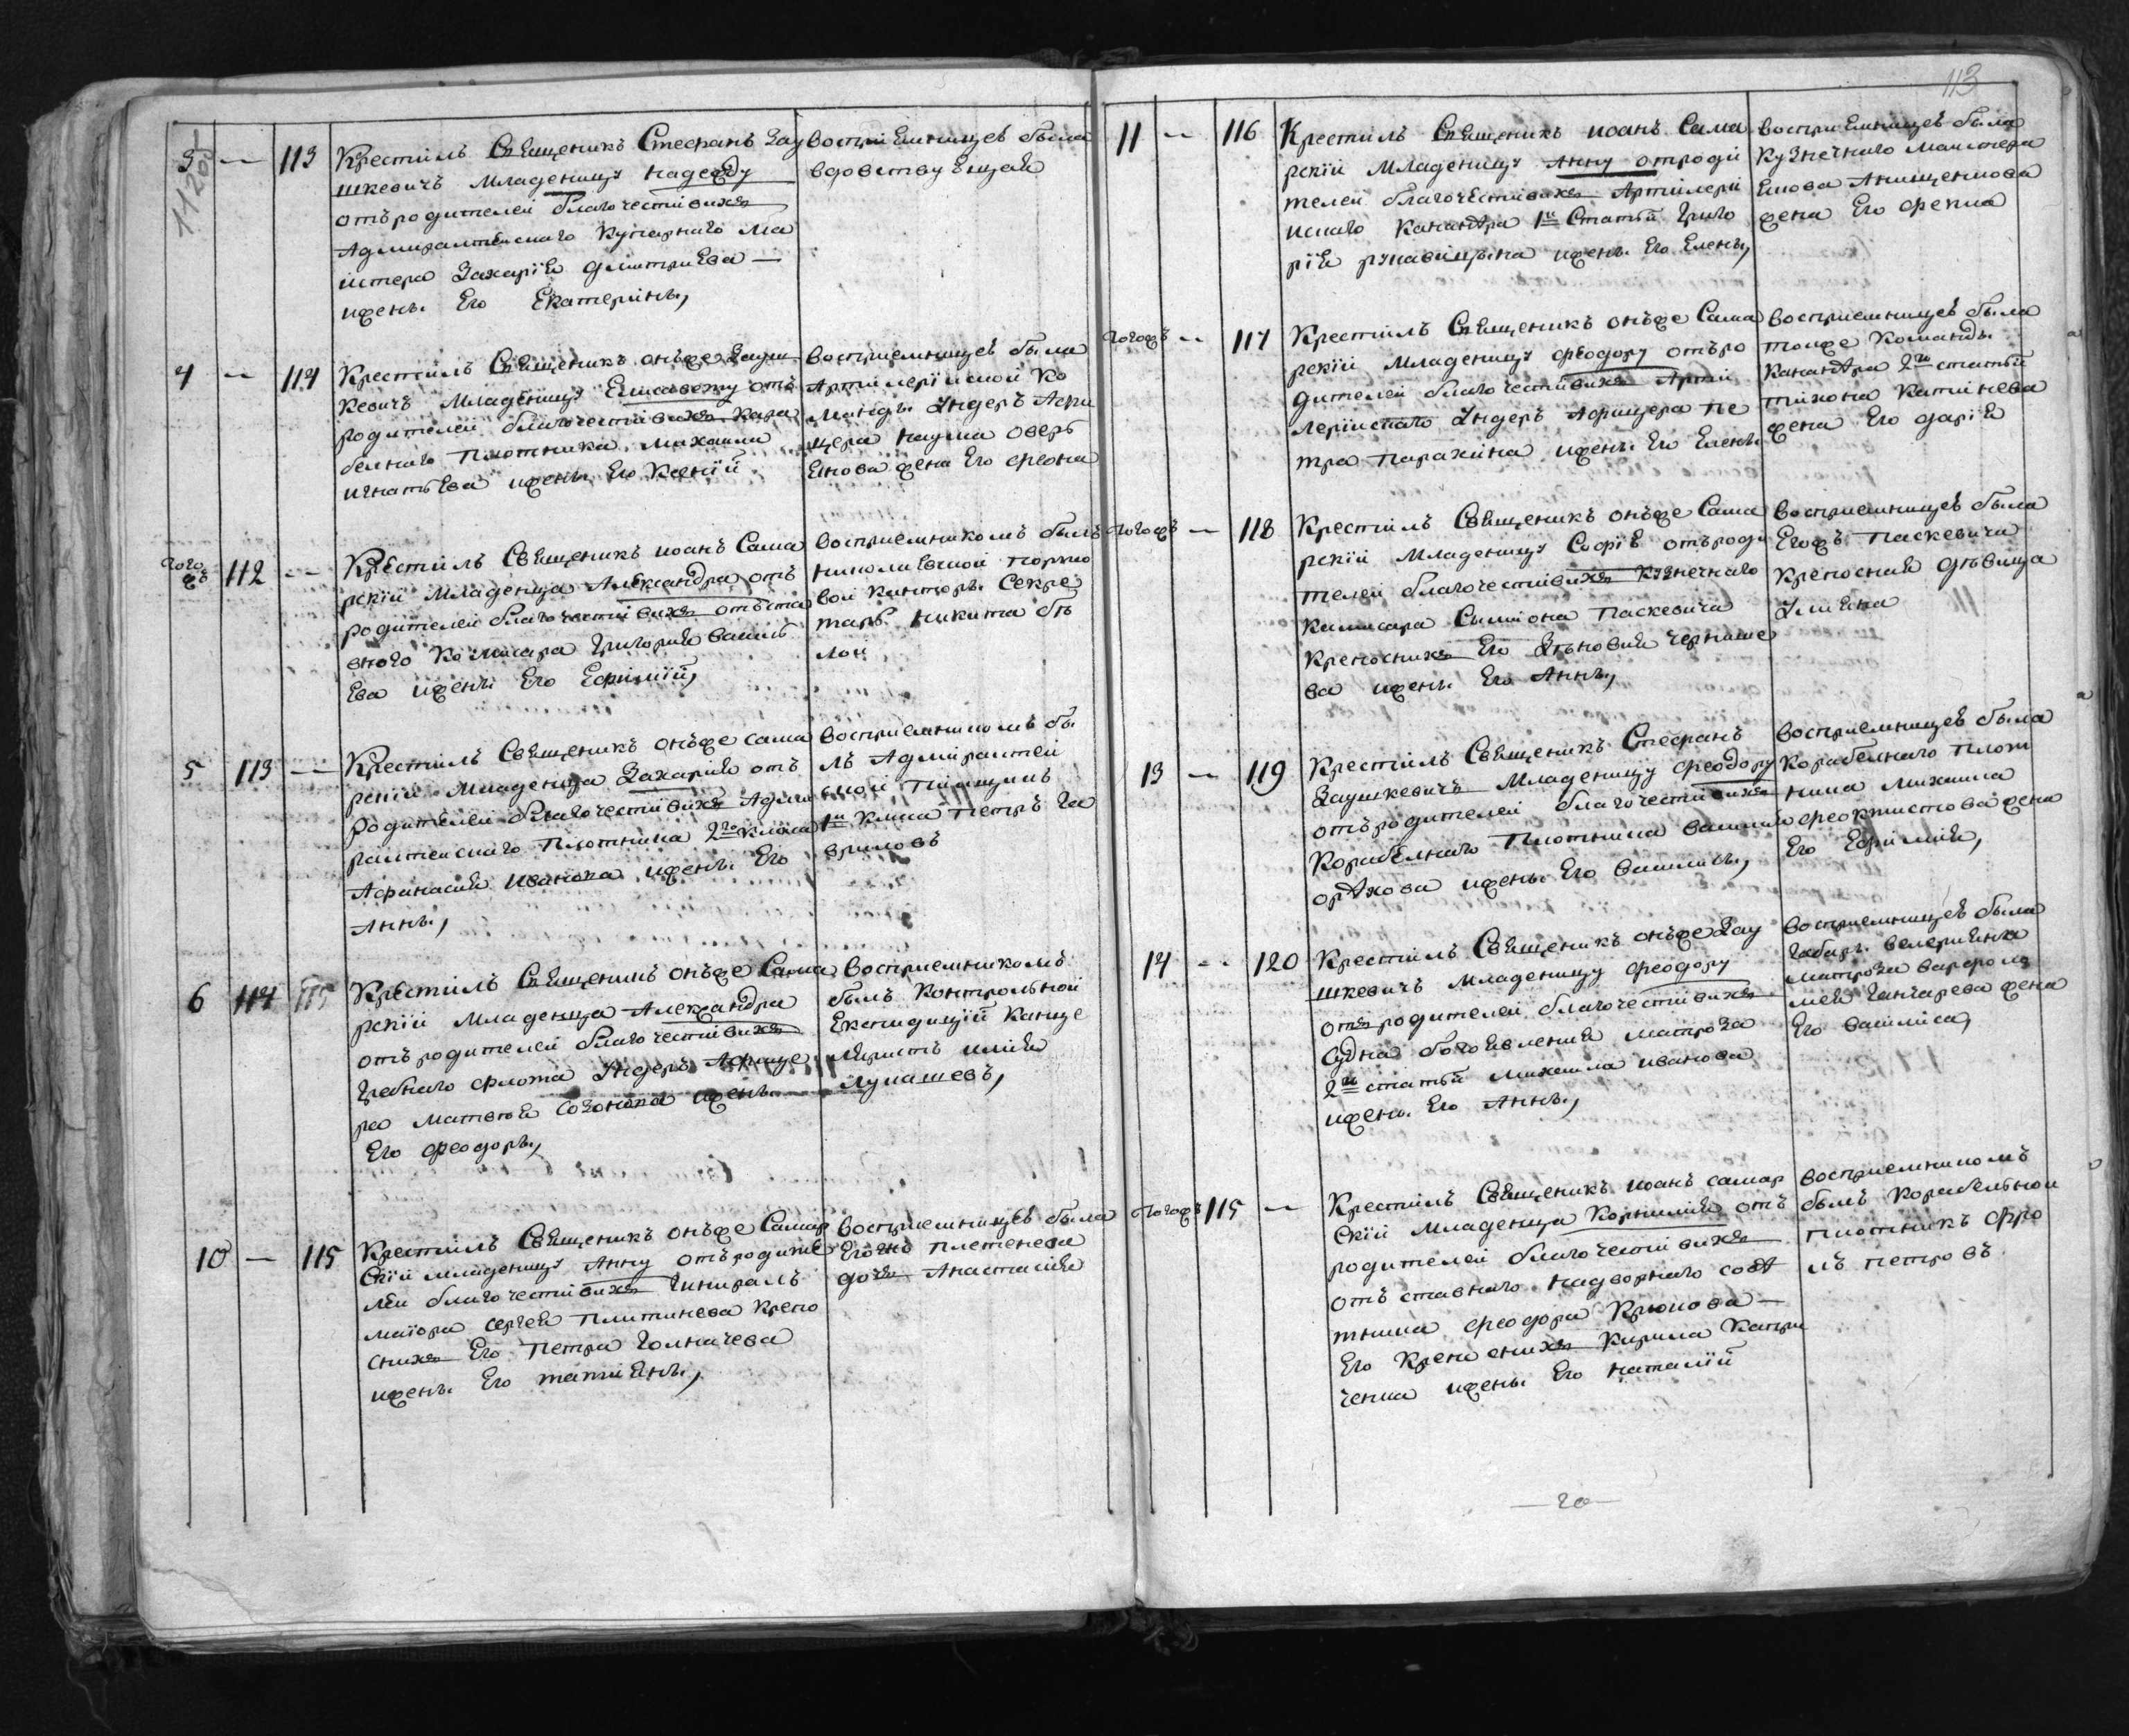 113
3 — 113 Крестилъ Священикъ Стефанъ Зау
шкевичъ младеницу надежду
отъ родителей благочестивихъ
Адмиралтейскаго купарнаго ма
истера Захарія Дмитриева —
ижены Его Екатерины,
восприемницею была
вдовствующая
4 — 114 Крестилъ Священикъ онъже Зауш
кевичъ младеницу Елисавету отъ
родителей благочестивихъ кара
белнаго плотника михаила
игнатьева ижены Его Ксеніи
восприемницею была
Артилерійской ко
манды Ундеръ Афи
цера наума
жена Его
того жъ 112 — Крестилъ Священикъ иоанъ Сама
рскій младенца Александра отъ
родителей благочестивихъ отъста
вного комисара григория василь
ева ижены Его Ефиміи,
восприемникомъ былъ
николаевской порто
вой канторы Секре
таръ никита бѣ
лой
5 113 — Крестилъ Священикъ онъже сама
рскій младенца Захарія отъ
родителей благочестивихъ Адми
ралтейскаго плотника 2го класа
Афанасия иванова ижены Его
Анны,
восприемникомъ бы
лъ Адмиралтей
ской
1й класа петръ га
вриловъ
6 114 115 Крестилъ Священикъ онъже Сама
рскій младенца Александра
отъ родителей благочестивихъ
гребнаго флота Ундеръ Афице
ра матвея ижены
Его феодоры,
восприемникомъ
былъ контрольной
Експедиціи канце
Лукашевъ,
10 — 115 Крестилъ Священикъ онъже Самар
скій младеницу Анну отъ родите
лей благочестивихъ
маіора сергея крепо
снихъ Его петра толмачева
ижены Его татияны,
восприемницею была
дочь Анастасия
11 — 116 Крестилъ Священикъ иоанъ Сама
рскій младеницу Анну отроди
телей благочестивихъ Артилері
искаго канонѣра 1й Статьи григо
рія рукавицына ижены Его Елены,
восприемницею была
кузнечнаго маистера
жена Его фекла
того жъ — 117 Крестилъ Священикъ онъже Сама
рскій младеницу феодору отъро
дителей благочестивихъ Арти
лерійскаго Ундеръ Афицера пе
тра парахина ижены Его Елены
восприемницею была
тоиже команды
канонѣра 2й статьи
тихона
жена Его дария
того жъ — 118 Крестилъ Священикъ онъже Сама
рскій младеницу Софію отъроди
телей благочестивихъ кузнечнаго
камисара Симиона Паскевича
крепоснихъ Его Зѣновия черныше
ва ижены Его Анны,
восприемницею была
Егожъ Паскевича
крепосная дѣвица
Улияна
13 — 119 Крестилъ Священикъ Стефанъ
Заушкевичъ младеницу феодору
отъ родителей благочестивихъ
корабелнаго плотника василия
орѣхова ижены Его василисы,
восприемницею была
корабелнаго плот
ника михаила
феоктистова жена
Его Ефимия,
14 — 120 Крестилъ Священикъ онъже Зау
шкевичъ младеницу феодору
отъ родителей благочестивихъ
судна богоявления матроза
2й статьи михаила иванова
ижены Его Анны,
восприемницею была
матроза варфоло
мея ганчарева жена
Его василиса,
того жъ 115 — Крестилъ Священикъ иоанъ самар
скій младенца корнилия отъ
родителей благочестивихъ
отъ ставнаго надворнаго совѣ
тника феодора Крюкова —
Его крепоснихъ кирила капри
ченка ижены Его наталіи
восприемникомъ
былъ корабельной
плотникъ фро
лъ петровъ
— 20 —